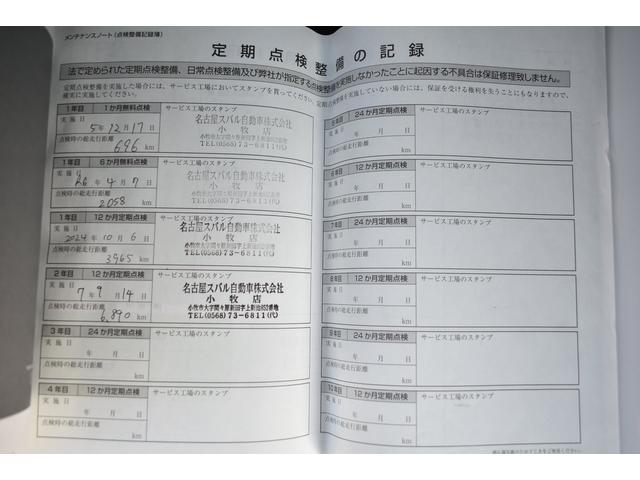 メンテナンスノート(点検整備記録簿)
定期点検整備の記録
法で定められた定期点検整備、日常点検整備及び弊社が指定する点検整備を実施しなかったことに起因する不具合は保証修理致しません。
定期点検整備を実施した場合には、サービス工場においてスタンプを貰ってください。定期点検整備を実施していない場合には、保証を受ける権利を失うことにもなりますので、
確実に実施してください。
1年目 1か月無料点検 サービス工場のスタンプ
実施日
5年12月17日
点検時の総走行距離
696 km
名古屋スバル自動車株式会社
小牧店
小牧市大字間々原新田字上新池852番地
TEL(0568)73-6811(代)
1年目 6か月無料点検 サービス工場のスタンプ
実施日
R6年4月7日
点検時の総走行距離
2058 km
名古屋スバル自動車株式会社
小牧店
小牧市大字間々原新田字上新池852番地
TEL(0568)73-6811(代)
1年目 12か月定期点検 サービス工場のスタンプ
実施日
2024年10月6日
点検時の総走行距離
3965 km
名古屋スバル自動車株式会社
小牧店
小牧市大字間々原新田字上新池852番地
TEL(0568)73-6811(代)
2年目 12か月定期点検 サービス工場のスタンプ
実施日
7年9月14日
点検時の総走行距離
6,890 km
名古屋スバル自動車株式会社
小牧店
小牧市大字間々原新田字上新池852番地
TEL(0568)73-6811(代)
3年目 24か月定期点検 サービス工場のスタンプ
実施日
年 月 日
点検時の総走行距離
km
4年目 12か月定期点検 サービス工場のスタンプ
実施日
年 月 日
点検時の総走行距離
km
5年目 24か月定期点検 サービス工場のスタンプ
実施日
年 月 日
点検時の総走行距離
km
6年目 12か月定期点検 サービス工場のスタンプ
実施日
年 月 日
点検時の総走行距離
km
7年目 24か月定期点検 サービス工場のスタンプ
実施日
年 月 日
点検時の総走行距離
km
8年目 12か月定期点検 サービス工場のスタンプ
実施日
年 月 日
点検時の総走行距離
km
9年目 24か月定期点検 サービス工場のスタンプ
実施日
年 月 日
点検時の総走行距離
km
10年目 12か月定期点検 サービス工場のスタンプ
実施日
年 月 日
点検時の総走行距離
km